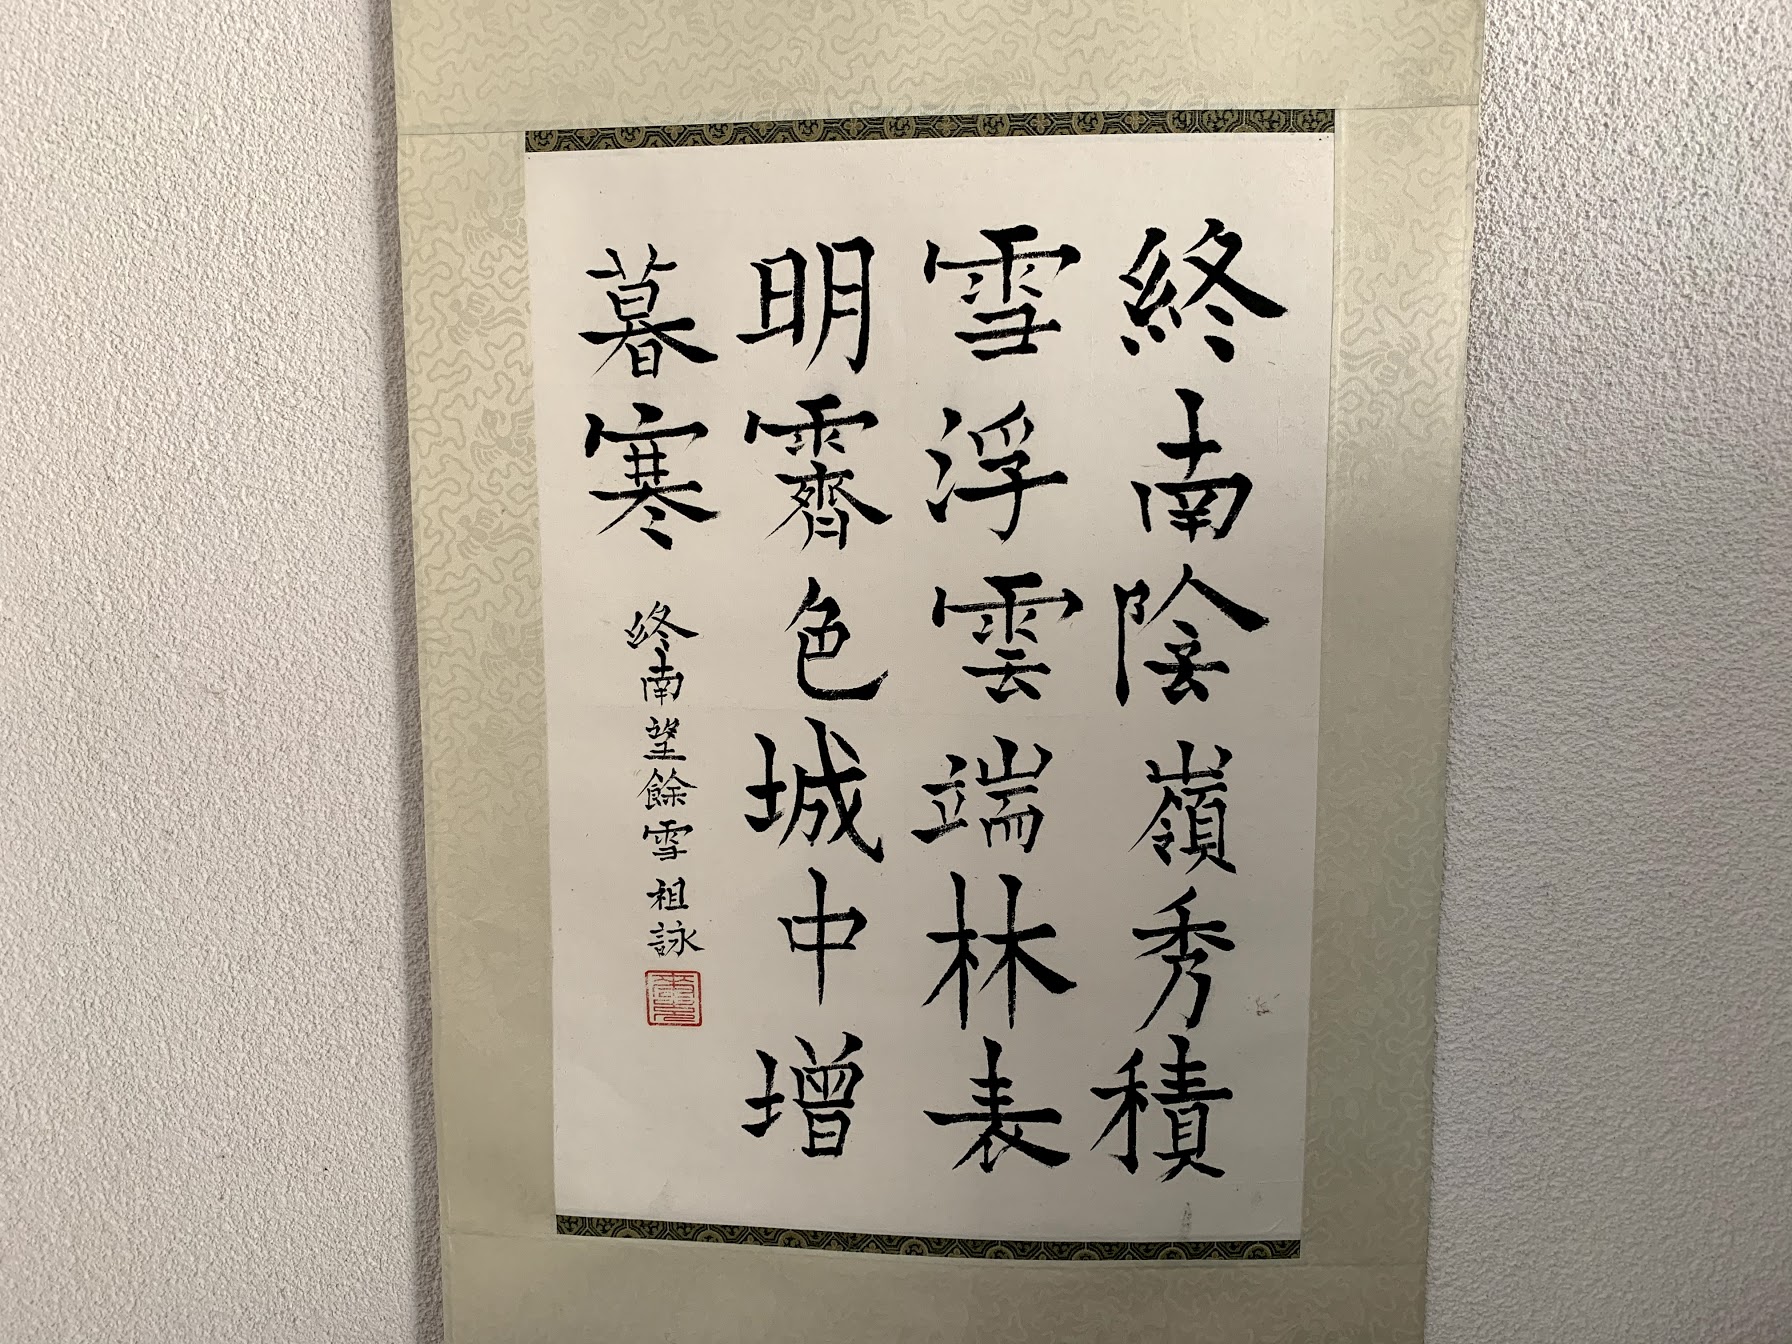 終南陰嶺秀積
雪浮雲端林表
明霽色城中增
暮寒
終南望餘雪 祖詠